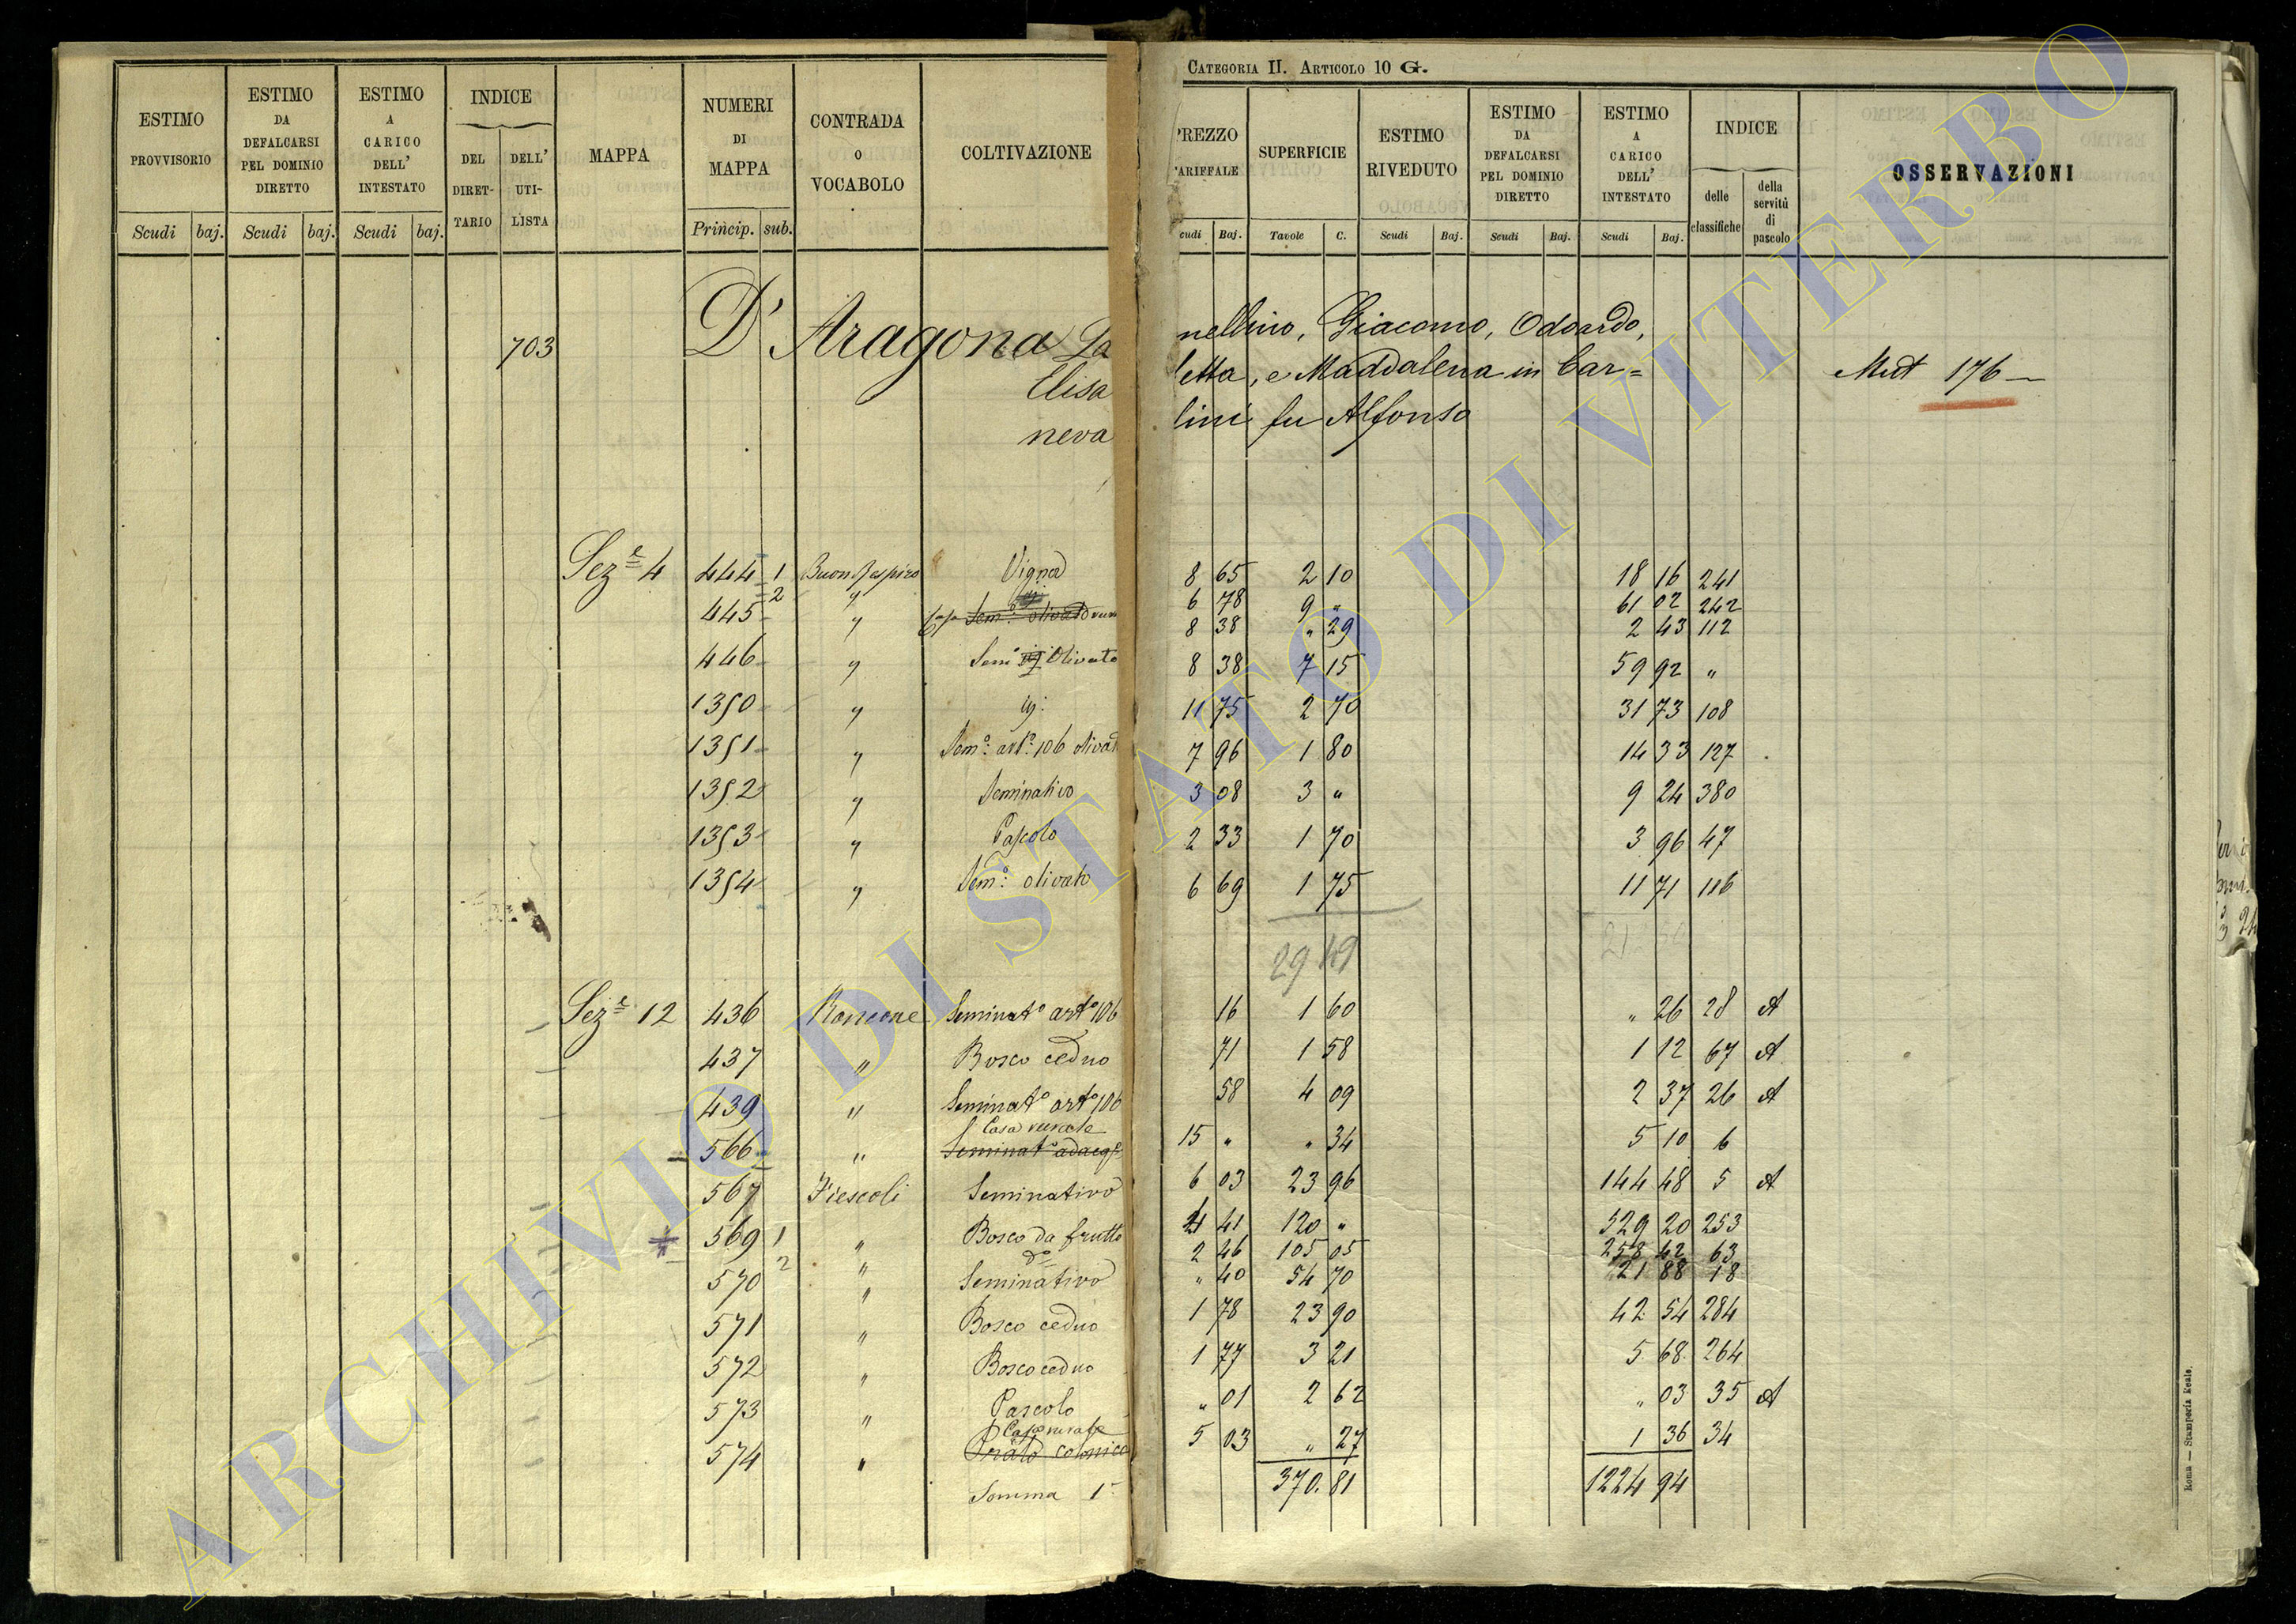 CATEGORIA II. ARTICOLO 10 G.
ESTIMO PROVVISORIO Scudi baj.
ESTIMO DA DEFALCARSI PEL DOMINIO DIRETTO Scudi baj.
ESTIMO A CARICO DELL' INTESTATO Scudi baj.
INDICE DEL DIRETTARIO DELL' UTILISTA
MAPPA
NUMERI DI MAPPA Princip. sub.
CONTRADA O VOCABOLO
COLTIVAZIONE
PREZZO TARIFFALE Scudi Baj.
SUPERFICIE Tavole C.
ESTIMO RIVEDUTO Scudi Baj.
ESTIMO DA DEFALCARSI PEL DOMINIO DIRETTO Scudi Baj.
ESTIMO A CARICO DELL' INTESTATO Scudi Baj.
INDICE delle classifiche della servitù di pascolo
OSSERVAZIONI
703 D' Aragona Panellino, Giacomo, Odoardo,
Elisa letta, e Maddalena in Car= Mut 176
neva lini fu Alfonso
Sez.e 4 444 1 Buon Respiro Vigna 8 65 2 10 18 16 241
2 " 6 78 9 " 61 02 242
445 " Sem.o olivato 8 38 " 29 2 43 112
446 " Sem.o Olivato 8 38 7 15 59 92 "
1350 " 11 75 2 70 31 73 108
1351 " Sem.o art.o 106 olivato 7 96 1 80 14 33 127
1352 " Seminativo 3 08 3 " 9 24 380
1353 " Pascolo 2 33 1 70 3 96 47
1354 " Sem.o olivato 6 69 1 75 11 71 116
29 49
Sez.e 12 436 Roncone Seminat.o art.o 106 16 1 60 " 26 28 A
437 " Bosco ceduo 71 1 58 1 12 67 A
439 " Seminat.o art.o 106 58 4 09 2 37 26 A
Casa rurale
566 " Seminat.o adacq.e 15 " " 34 5 10 6
567 Fiescoli Seminativo 6 03 23 96 144 48 5 A
569 1 " Bosco da frutto 4 41 120 " 529 20 253
2 " d.o 2 46 105 05 258 42 63
570 " Seminativo " 40 54 70 21 88 18
571 " Bosco ceduo 1 78 23 90 42 54 284
572 " Bosco ceduo 1 77 3 21 5 68 264
573 " Pascolo " 01 2 62 " 03 35 A
Casa rurale
574 " Prato colonico 5 03 " 27 1 36 34
Somma 1a 370. 81 1224 94
Roma — Stamperia Reale.
ARCHIVIO DI STATO DI VITERBO